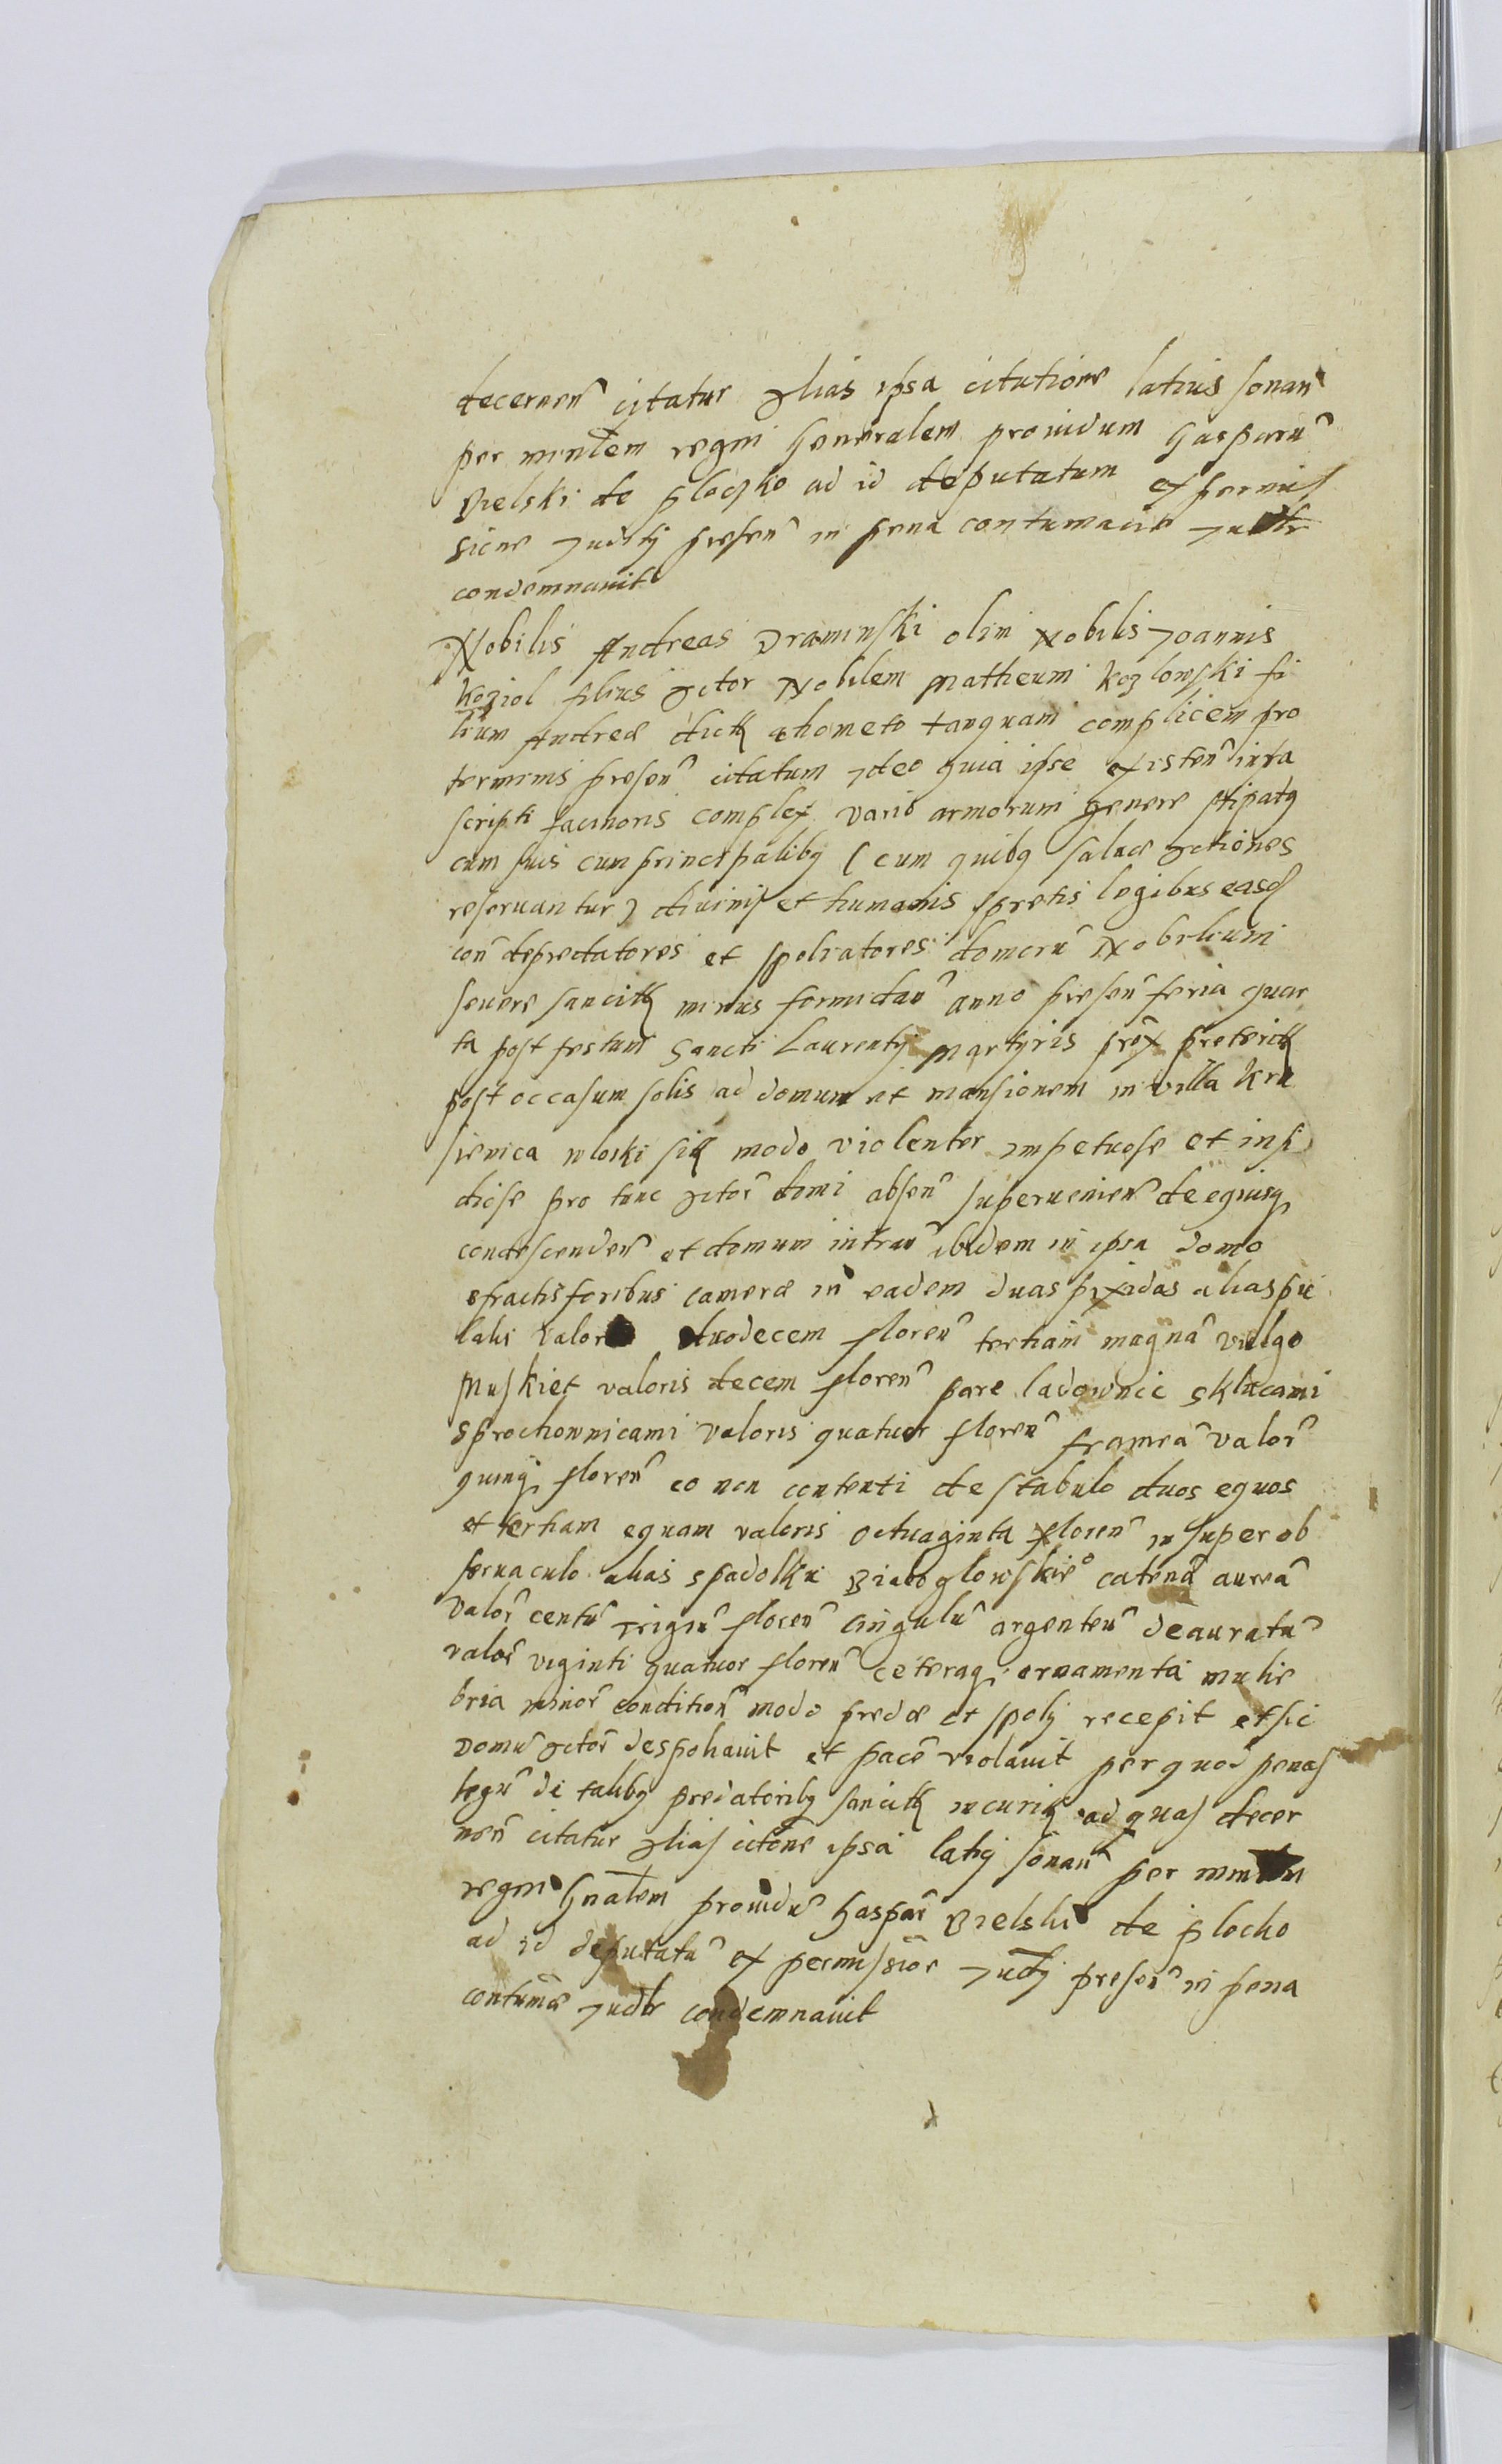 decernen̄ citatur Alias ipsa citatione latius sonan̄
per min̄lem regni Generalem prouidum Gasparū
Bielski de ploczko ad id deputatum ex permis
sione Judicij presen̄ in pena contumacie Judr̄
condemnauit
Nobilis Andreas Draminski olim Nobilis Joannis
Koziol filius Actor Nobilem Matheum Kozlowski fi
lium Andreæ dick chometo tanquam complicem pro
terminis presen̄ citatum Ideo quia ipse existen̄ infra
scripti facinoris complex vario armorum genere stipatq
cum suis cumprincipalibq ( cum quibq saluæ Actiones
reseruantur ) diuinis et humanis spretis legibus easd
con depredatores et spoliatores domorū Nobilium
seuere sancitt minus formidan̄ anno presen̄ feria quar
ta post festum Sancti Laurentij Martyris prex preteritt
post occasum solis ad domum et mansionem in villa Kru
sienica wloski sitt modo violenter impetuose et insi
diose pro tunc Actor̄ domi absen̄ superuenien̄ de equisq
condescenden̄ et domum intran̄ ibidem in ipsa domo
effractis foribus cameræ in eadem duas pixidas alias pu
laki valor duodecem floren̄ tertiam magnā vulgo
Muskiet valoris decem floren̄ pare ladownic skluczami
sprochownicami valoris quatuor floren̄ frameā valor̄
quinq floren̄ eo non contenti de stabulo duos equos
et tertiam equam valoris octuaginta floren̄ insuper ob
seruaculo alias spadolku Bialoglowskie catenā aureā
valor̄ centū Trigin̄ floren̄ cingulū argenteū deauratū
valor̄ viginti quatuor floren̄ ceteraq ornamenta mulie
bria minor̄ condition̄ modo predæ et spolij recepit et sic
Domū Actor̄ despoliauit et pacē violauit per quod penas
legū de talibq predatoribq sancitt incuritt ad quas decer
nen̄ citatur Alias citōne ipsa latiq sonan̄ per
regni Gn̄alem prouidū Gaspar̄ Bielski de plocko
ad id deputatū ex permissione Judij presen̄ in pena
contuma Judr̄ condemnauit